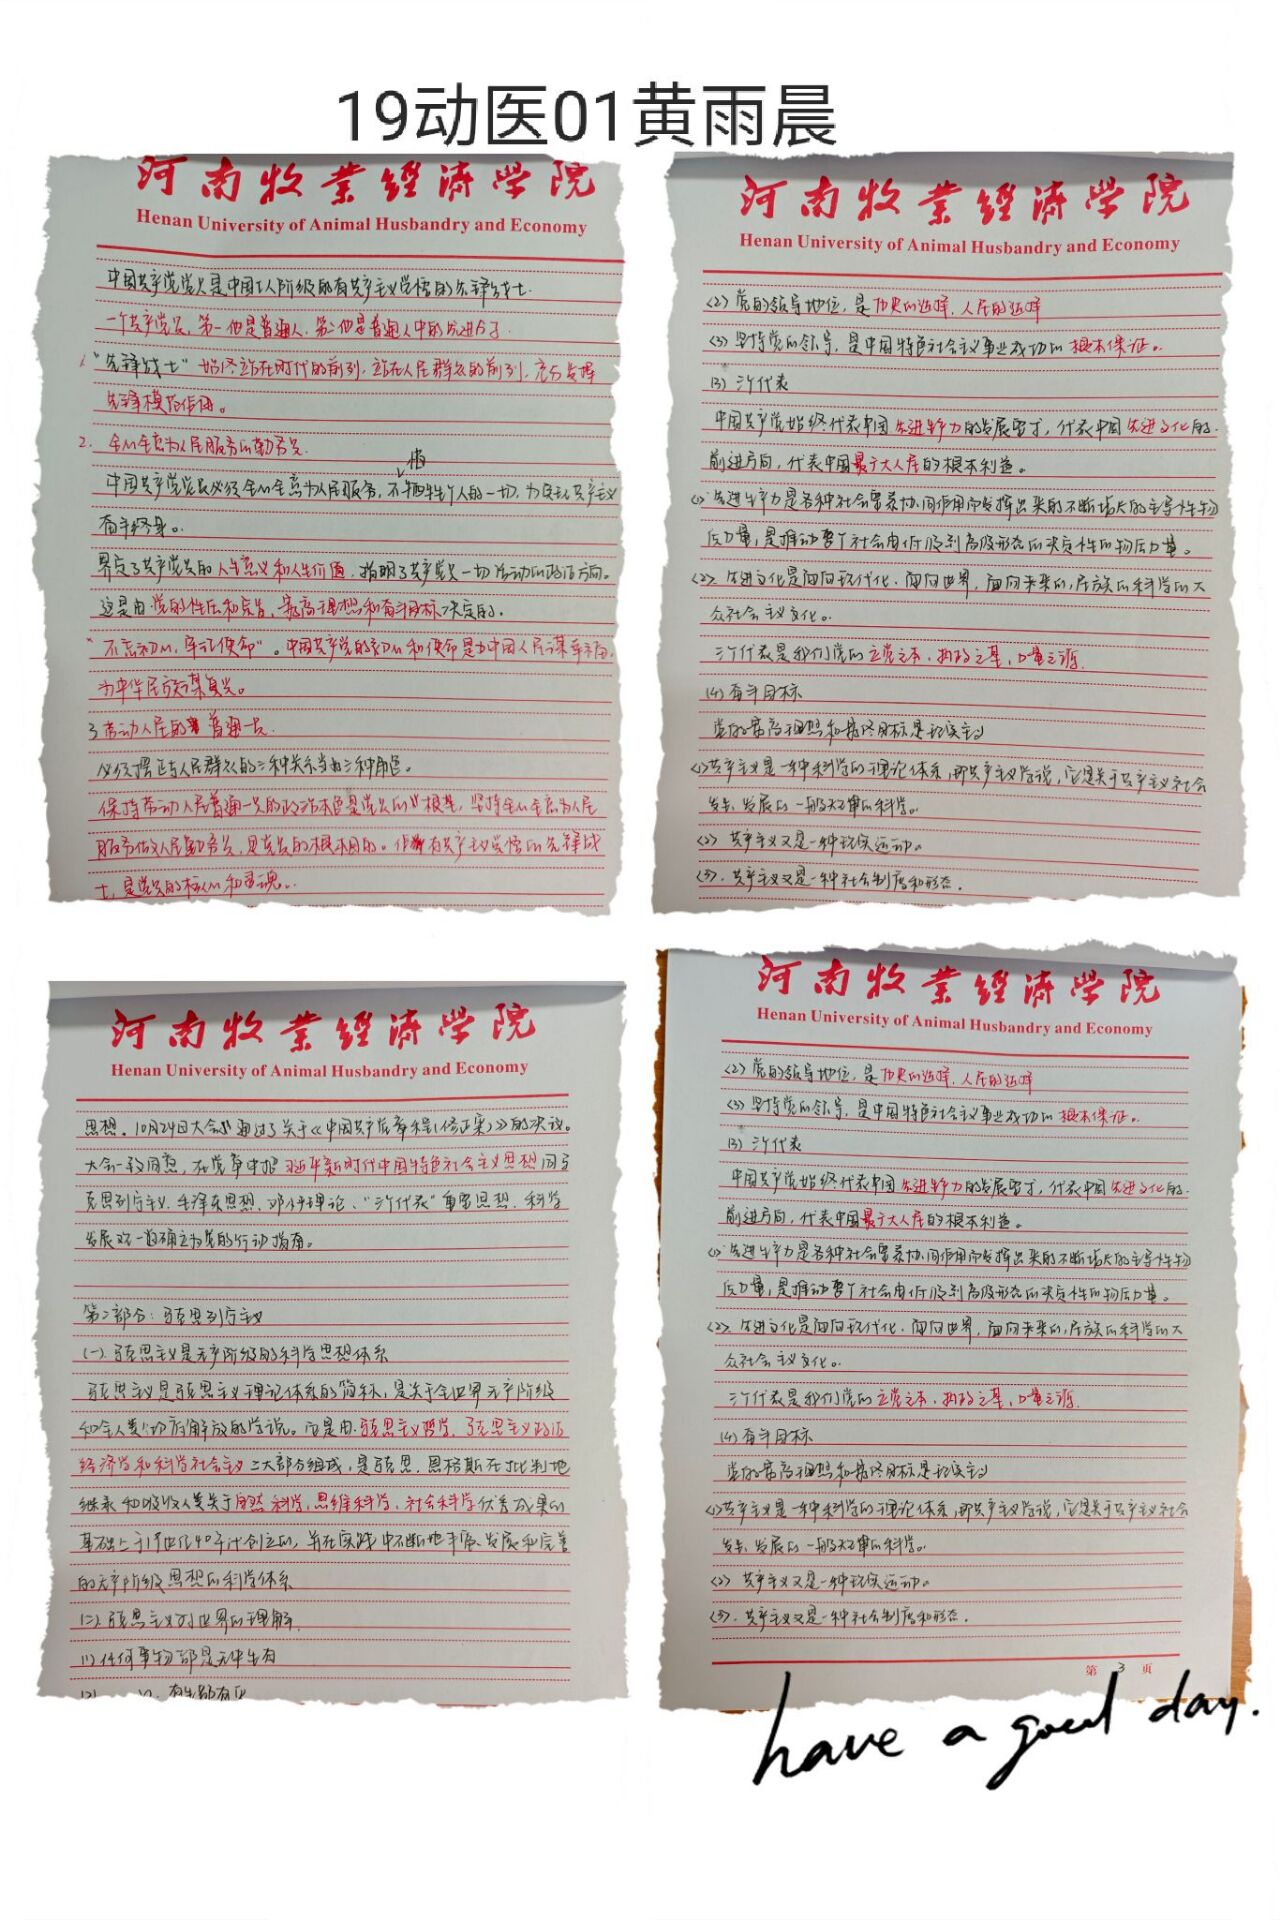 19动医01黄雨晨
河南牧業經濟學院
Henan University of Animal Husbandry and Economy
中国共产党党员是中国工人阶级的有共产主义觉悟的先锋战士.
一个共产党员,第一他是普通人,第二他是普通人中的先进分子.
"先锋战士"始终站在时代的前列,站在人民群众的前列,充分发挥
先锋模范作用。
2. 全心全意为人民服务的勤务员.
惜
中国共产党党员必须全心全意为人民服务,不牺牲个人的一切,为实现共产主义
奋斗终身。
界定了共产党员的人生意义和人生价值,指明了共产党员一切活动的政治方向。
这是由党的性质和宗旨,最高理想和奋斗目标决定的.
"不忘初心,牢记使命"。中国共产党的初心和使命是为中国人民谋幸福,
为中华民族谋复兴。
3 劳动人民的普通一员.
必须摆正与人民群众的三种关系当好三种角色。
保持劳动人民普通一员的政治本色是党员的根基,坚持全心全意为人民
服务做人民勤务员,是党员的根本目的。作为有共产主义觉悟的先锋战
士,是党员的核心和灵魂。
河南牧業經濟學院
Henan University of Animal Husbandry and Economy
<2> 党的领导地位,是历史的选择,人民的选择
<3> 坚持党的领导,是中国特色社会主义事业成功的根本保证。
(3) 三个代表
中国共产党始终代表中国先进生产力的发展要求,代表中国先进文化的
前进方向,代表中国最广大人民的根本利益。
<1> 先进生产力是各种社会要素协同作用而发挥出来的不断增长的主导性物
质力量,是推动整个社会由低级到高级形态的决定性的物质力量。
<2> 先进文化是面向现代化,面向世界,面向未来的,民族的科学的大
众社会主义文化。
三个代表是我们党的立党之本,执政之基,力量之源.
(4) 奋斗目标
党的最高理想和最终目标是实现共产主义
<1> 共产主义是一种科学的理论体系,即共产主义学说,它是关于共产主义社会
发生、发展的一般规律的科学。
<2> 共产主义又是一种现实运动。
<3>. 共产主义又是一种社会制度和形态.
河南牧業經濟學院
Henan University of Animal Husbandry and Economy
思想。10月24日大会通过了关于《中国共产党章程(修正案)》的决议。
大会一致同意,在党章中把习近平新时代中国特色社会主义思想同马
克思列宁主义、毛泽东思想、邓小平理论、"三个代表"重要思想、科学
发展观一道确立为党的行动指南。
第二部分:马克思列宁主义
(一). 马克思主义是无产阶级的科学思想体系
马克思主义是马克思主义理论体系的简称,是关于全世界无产阶级
和全人类彻底解放的学说。它是由马克思主义哲学,马克思主义政治
经济学和科学社会主义三大部分组成,是马克思、恩格斯在批判地
继承和吸收人类关于自然科学,思维科学,社会科学优秀成果的
基础上于19世纪40年代创立的,并在实践中不断地丰富、发展和完善
的无产阶级思想的科学体系
(二). 马克思主义对世界的理解
(1) 任何事物都是无中生有
河南牧業經濟學院
Henan University of Animal Husbandry and Economy
<2> 党的领导地位,是历史的选择,人民的选择
<3> 坚持党的领导,是中国特色社会主义事业成功的根本保证。
(3) 三个代表
中国共产党始终代表中国先进生产力的发展要求,代表中国先进文化的
前进方向,代表中国最广大人民的根本利益。
<1> 先进生产力是各种社会要素协同作用而发挥出来的不断增长的主导性物
质力量,是推动整个社会由低级到高级形态的决定性的物质力量。
<2> 先进文化是面向现代化,面向世界,面向未来的,民族的科学的大
众社会主义文化。
三个代表是我们党的立党之本,执政之基,力量之源.
(4) 奋斗目标
党的最高理想和最终目标是实现共产主义
<1> 共产主义是一种科学的理论体系,即共产主义学说,它是关于共产主义社会
发生、发展的一般规律的科学。
<2> 共产主义又是一种现实运动。
<3>. 共产主义又是一种社会制度和形态.
第 3 页
have a good day.